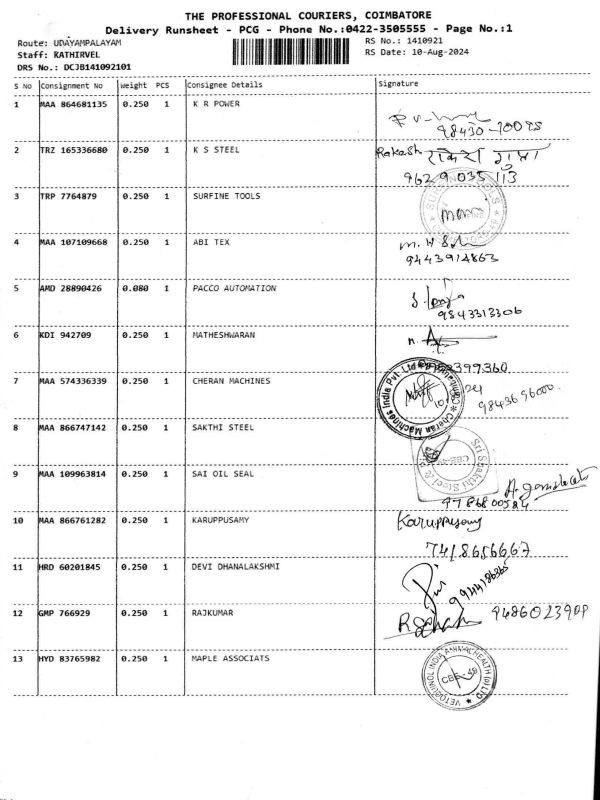 THE PROFESSIONAL COURIERS, COIMBATORE
Delivery Runsheet - PCG - Phone No.:0422-3505555 - Page No.:1
Route: UDAYAMPALAYAM
RS No.: 1410921
Staff: KATHIRVEL
RS Date: 10-Aug-2024
DRS No.: DCJB141092101
S No Consignment No Weight PCS Consignee Details Signature
1 MAA 864681135 0.250 1 K R POWER
98430-70095
2 TRZ 165336680 0.250 1 K S STEEL Rakesh राकेश गुप्ता
9629035113
3 TRP 7764879 0.250 1 SURFINE TOOLS
4 MAA 107109668 0.250 1 ABI TEX
9443914863
5 AMD 28890426 0.080 1 PACCO AUTOMATION
9843313306
6 KDI 942709 0.250 1 MATHESHWARAN
7 MAA 574336339 0.250 1 CHERAN MACHINES Cheran Machines India Pvt. Ltd
9843696000
8 MAA 866747142 0.250 1 SAKTHI STEEL Sri Sakthi Steel
9 MAA 109963814 0.250 1 SAI OIL SEAL
9786800584
10 MAA 866761282 0.250 1 KARUPPUSAMY Karuppusamy
7418656667
11 HRD 60201845 0.250 1 DEVI DHANALAKSHMI
9944186365
12 GMP 766929 0.250 1 RAJKUMAR
13 HYD 83765982 0.250 1 MAPLE ASSOCIATS VETOQUINOL INDIA ANIMAL HEALTH (P) LTD
CBE-48